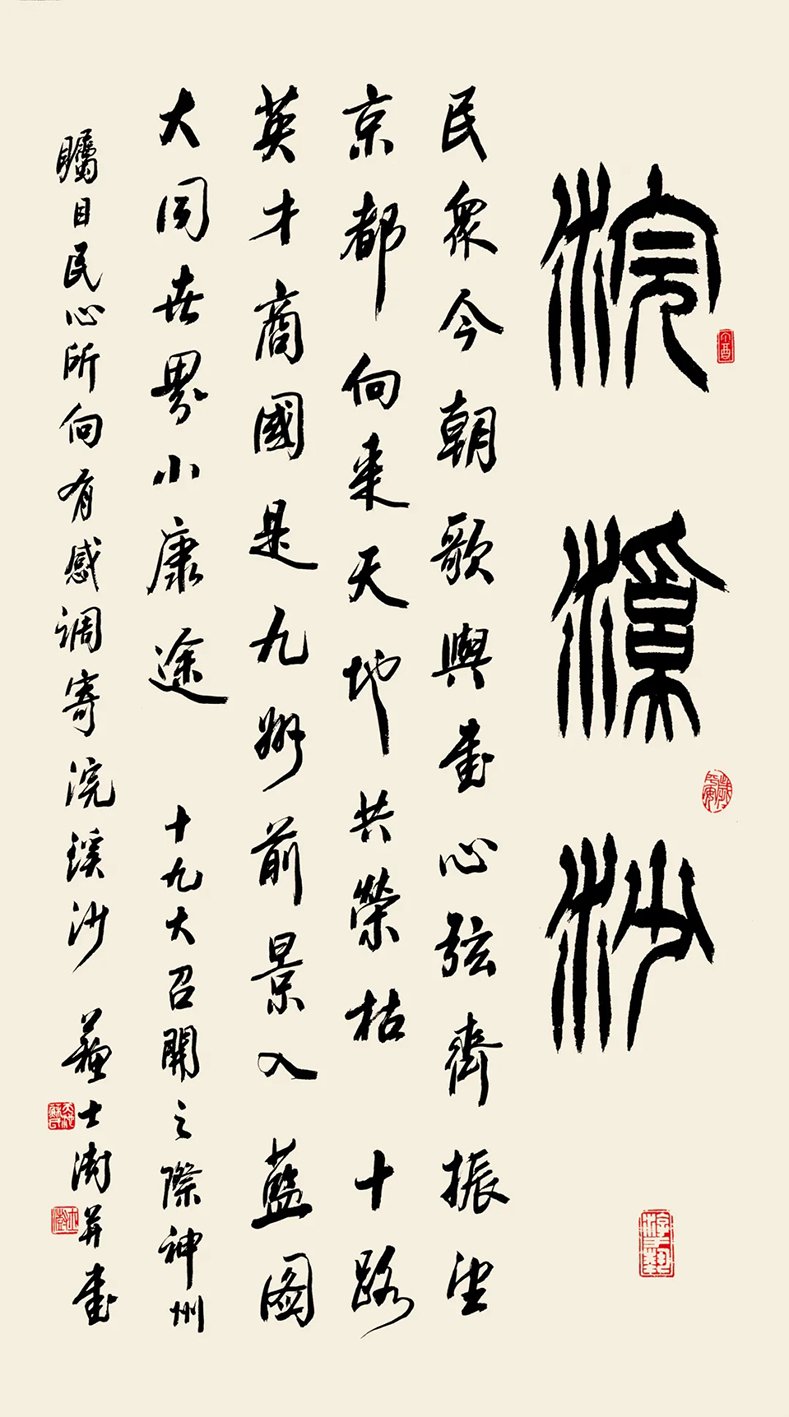 浣溪沙
民眾今朝歌與書心弦齊振望
京都向來天地共榮枯 十路
英才商國是九州前景入藍图
大同世界小康途 十九大召開之際神州
矚目民心所向有感调寄浣溪沙 蘇士澍并書